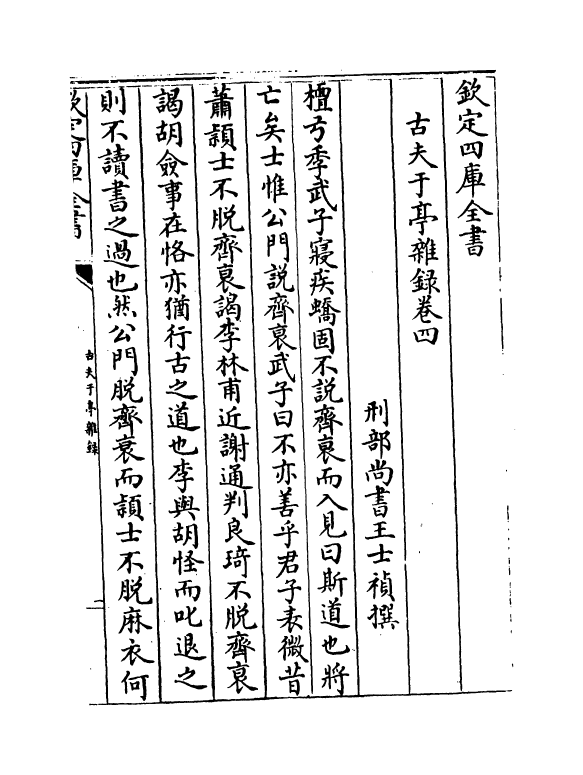 欽定四庫全書
古夫于亭雜録卷四
刑部尚書王士禎撰
檀弓季武子寢疾蟜固不說齊衰而入見曰斯道也將
亡矣士惟公門説齊衰武子曰不亦善乎君子表微昔
蕭頴士不脱齊衰謁李林甫近謝通判良琦不脱齊衰
謁胡僉事在恪亦猶行古之道也李與胡怪而叱退之
則不讀書之過也然公門脱齊衰而頴士不脱麻衣何
欽定四庫全書
古夫于亭雜録